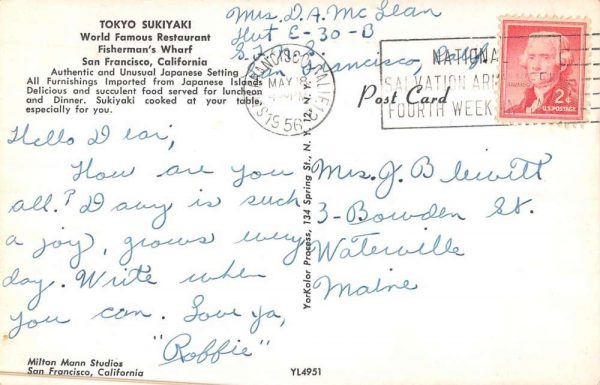 TOKYO SUKIYAKI
World Famous Restaurant
Fisherman's Wharf
San Francisco, California
Authentic and Unusual Japanese Setting
All Furnishings Imported from Japanese Islands
Delicious and succulent food served for luncheon
and Dinner. Sukiyaki cooked at your table,
especially for you.
Mrs. D. A. McLean
Hut E-30-B
San Francisco, Calif.
MAY 18
1956
NATIONAL
SALVATION ARMY
FOURTH WEEK
Post Card
2¢
U.S. POSTAGE
Hello Dear,
How are you
all? Davy is such
a joy, grows every
day. Write when
you can. Love ya,
"Roffie"
Mrs. J. B
3-Bowden St.
Waterville
Maine
YorKolor Process, 134 Spring St., N. Y. 12, N. Y.
Milton Mann Studios
San Francisco, California
YL4951